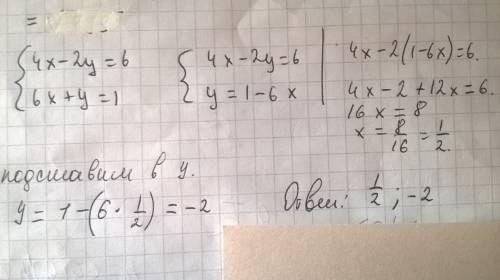 =
{ 4x-2y=6
6x+y=1
{ 4x-2y=6
y=1-6x
4x-2(1-6x)=6.
4x-2+12x=6.
16x=8
x=8/16=1/2.
подставим в y.
y= 1-(6·1/2)=-2
Ответ: 1/2; -2